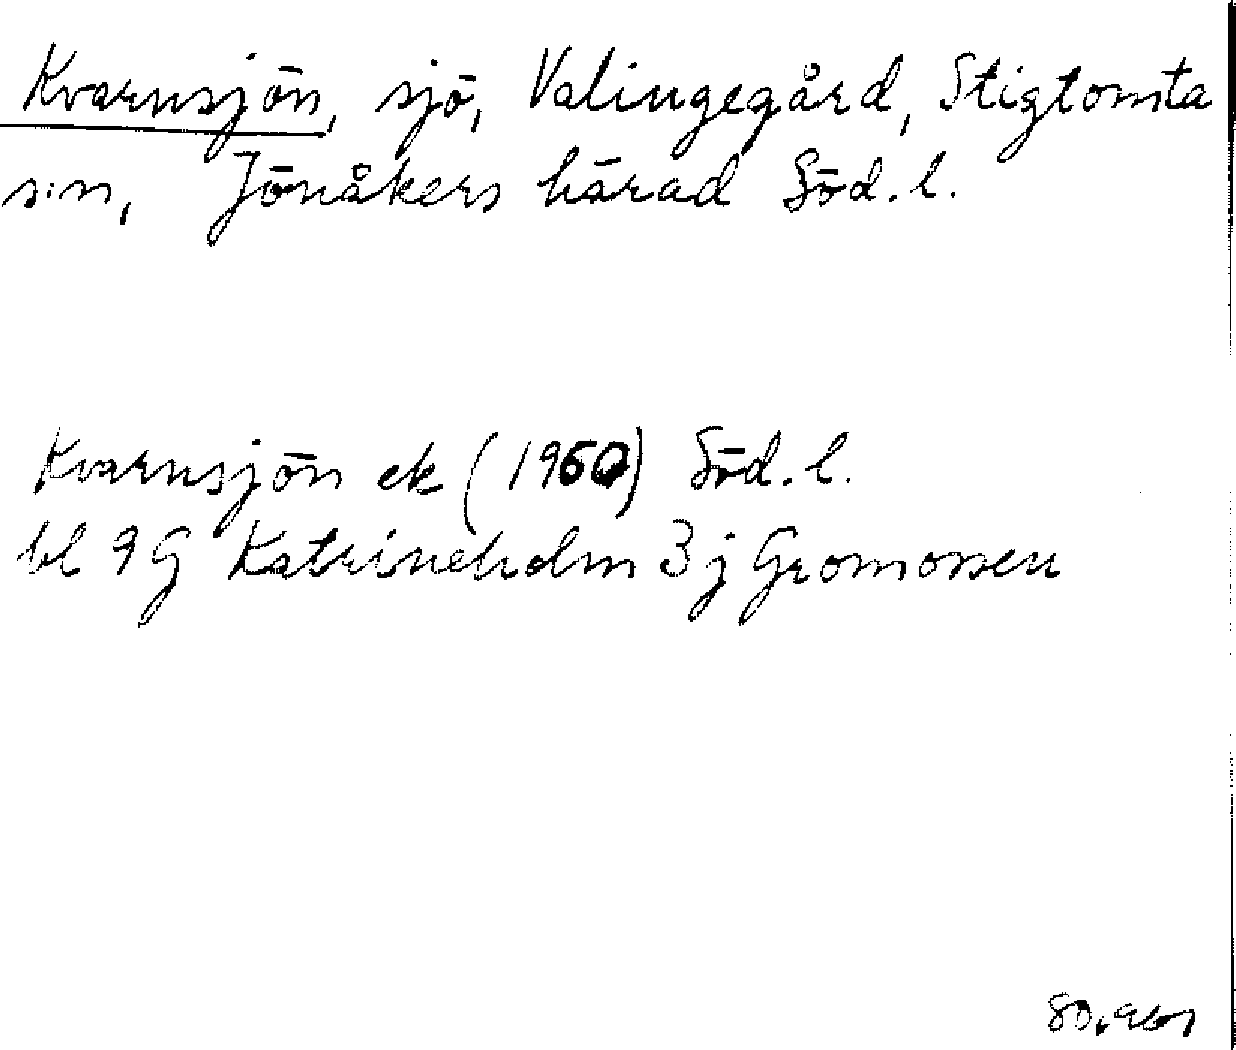 Kvarnsjön, sjö, Valingegård, Stigtomta
s:n, Jönåkers härad Söd. l.
Kvarnsjön ek (1960) Söd. l.
bl 9 G Katrineholm 3 j Gromossen